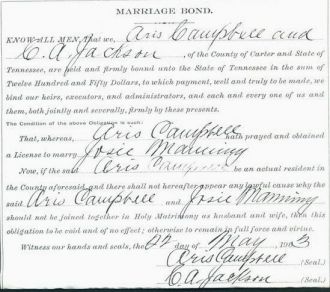 MARRIAGE BOND.
KNOW ALL MEN, That we, Aris Campbell and
C. A. Jackson, of the County of Carter and State of
Tennessee, are held and firmly bound unto the State of Tennessee in the sum of
Twelve Hundred and Fifty Dollars, to which payment, well and truly to be made, we
bind our heirs, executors, administrators, and each and every one of us and
them, both jointly and severally, firmly by these presents.
The Condition of the above Obligation is Such:
That, whereas, Aris Campbell hath prayed and obtained
a License to marry Josie Manning
Now, if the said Aris Campbell be an actual resident in
the County aforesaid and there shall not hereafter appear any lawful cause why the
said Aris Campbell and Josie Manning
should not be joined together in Holy Matrimony as husband and wife, then this
obligation to be void and of no effect; otherwise to remain in full force and virtue.
Witness our hands and seals, the 22 day of May, 1903
Aris Campbell (Seal.)
C. A. Jackson (Seal.)